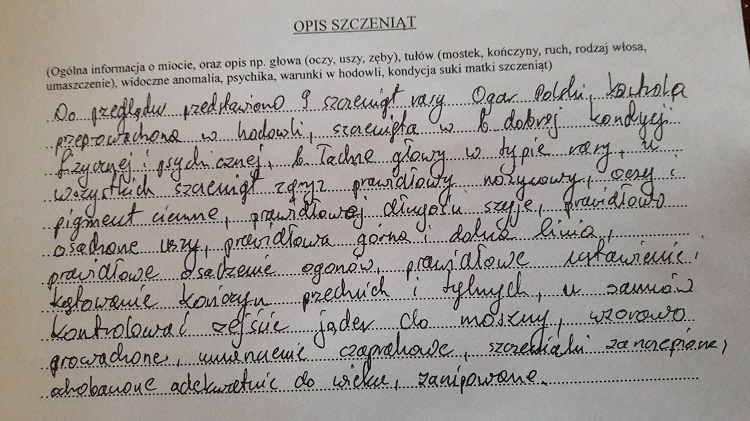 OPIS SZCZENIĄT
(Ogólna informacja o miocie, oraz opis np. głowa (oczy, uszy, zęby), tułów (mostek, kończyny, ruch, rodzaj włosa,
umaszczenie), widoczne anomalia, psychika, warunki w hodowli, kondycja suki matki szczeniąt)
Do przeglądu przedstawiono 9 szczeniąt rasy Ogar Polski, kontrola
przeprowadzona w hodowli, szczenięta w b. dobrej kondycji
fizycznej i psychicznej, b. ładne głowy w typie rasy, u
wszystkich szczeniąt zgryz prawidłowy nożycowy, oczy i
pigment ciemne, prawidłowej długości szyje, prawidłowo
osadzone uszy, prawidłowa górna i dolna linia,
prawidłowe osadzenie ogonów, prawidłowe ustawienie i
kątowanie kończyn przednich i tylnych, u samców
kontrolować zejście jąder do moszny, wzorowo
prowadzone, umaszczenie czaprakowe, szczeniaki zaszczepione,
odrobaczone adekwatnie do wieku, zachipowane.